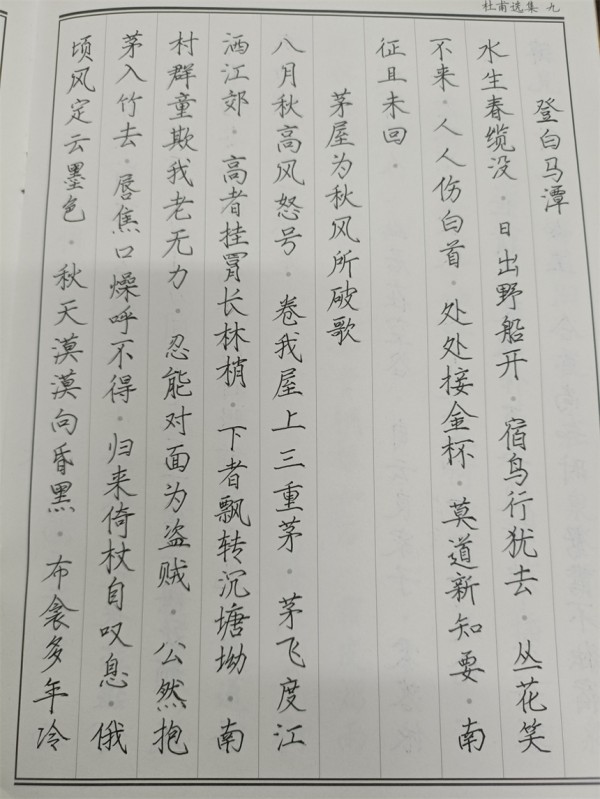 杜甫选集 九
登白马潭
水生春缆没·日出野船开·宿鸟行犹去·丛花笑
不来·人人伤白首·处处接金杯·莫道新知要·南
征且未回·
茅屋为秋风所破歌
八月秋高风怒号·卷我屋上三重茅·茅飞度江
洒江郊·高者挂罥长林梢·下者飘转沉塘坳·南
村群童欺我老无力·忍能对面为盗贼·公然抱
茅入竹去·唇焦口燥呼不得·归来倚杖自叹息·俄
顷风定云墨色·秋天漠漠向昏黑·布衾多年冷